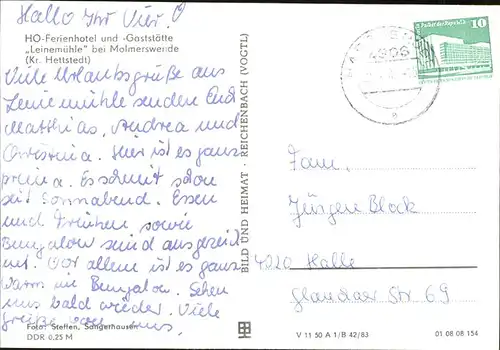 Hallo Ihr Vier. O
HO-Ferienhotel und -Gaststätte
„Leinemühle" bei Molmerswende
(Kr. Hettstedt)
Viele Urlaubsgrüße aus
Leinemühle senden Euch
Matthias, Andrea und
Christina. Hier ist es ganz
prima. Es schneit schon
seit Sonnabend. Essen
und Trinken sowie
Bungalow sind ausgezeich
net. Vor allem ist es ganz
warm im Bungalow. Sehen
uns bald wieder. Viele
Grüße von uns.
Foto: Steffen, Sangerhausen
DDR 0,25 M
BILD UND HEIMAT · REICHENBACH (VOGTL)
Palast der Republik
10
Fam.
Jürgen Block
4020 Halle
Glauchaer Str 69
V 11 50 A 1/B 42/83
01 08 08 154